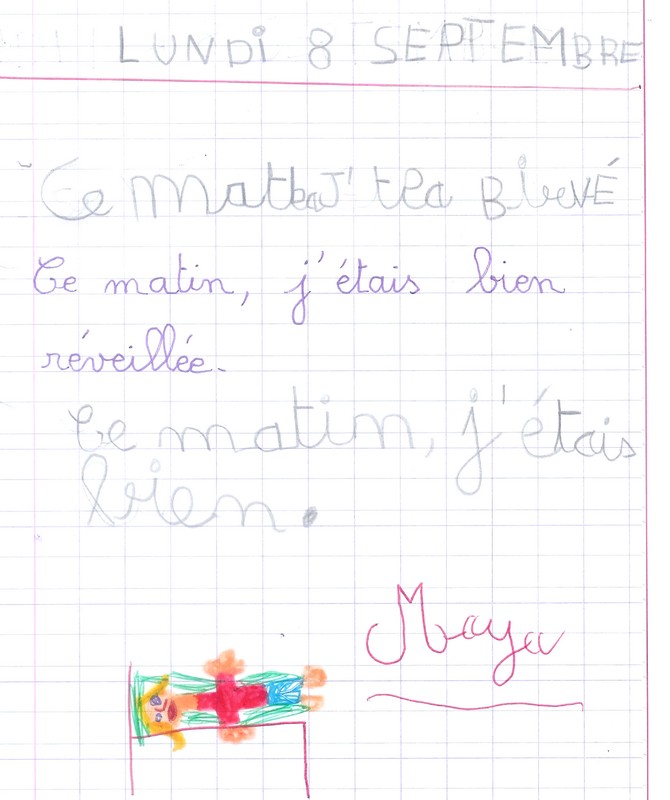 LUNDi 8 SEPTEMBRE
Ce matbaJ' tea BleVÉ
Ce matin, j'étais bien
réveillée.
Ce matin, j'étais
bien.
Maya